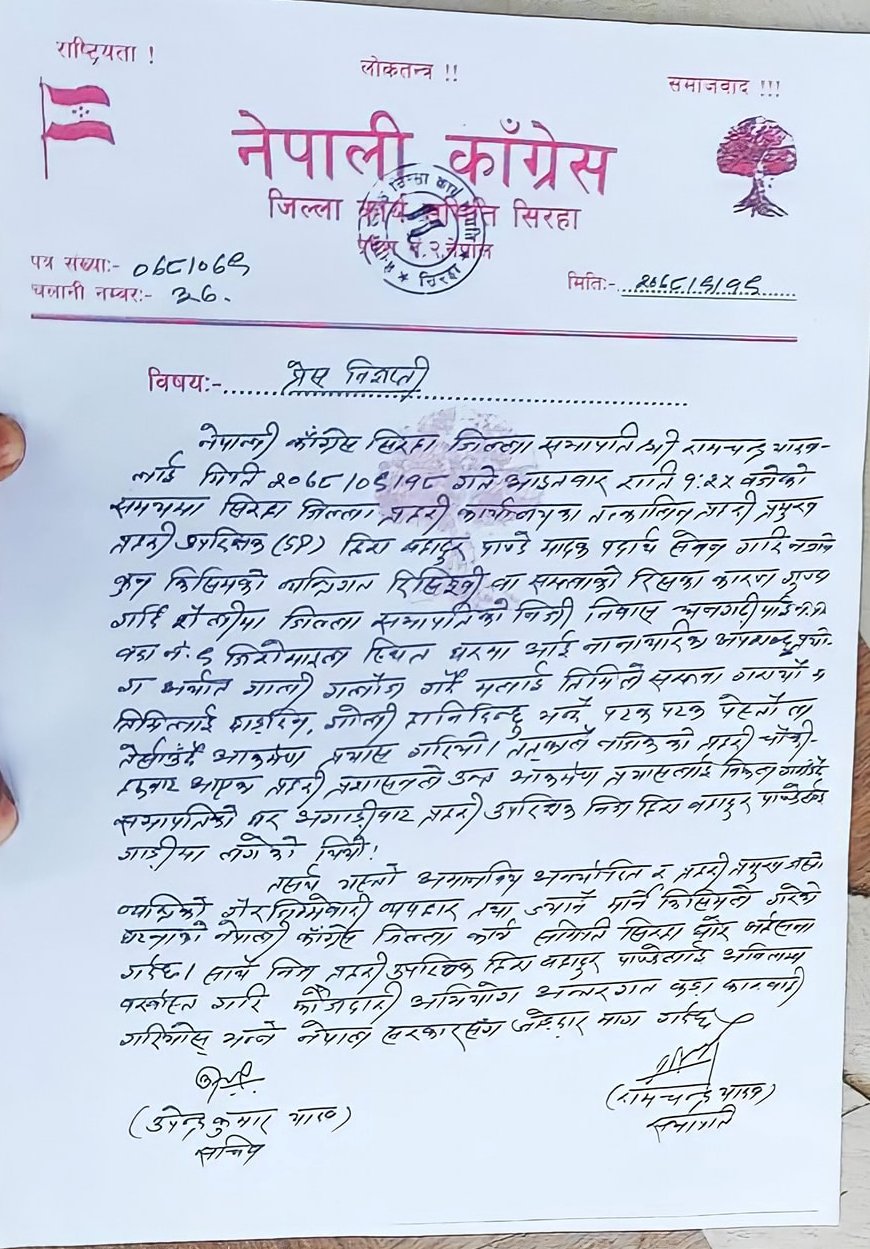 राष्ट्रियता !
लोकतन्त्र !!
समाजवाद !!!
नेपाली काँग्रेस
जिल्ला कार्य समिति सिरहा
नेपाल
पत्र संख्या:- ०६८/०६९
मिति:- २०६८/९/१९
चलानी नम्बर:- ३६.
विषय:- प्रेस विज्ञप्ती
नेपाली काँग्रेस सिरहा जिल्ला सभापति श्री रामचन्द्र यादव-
लाई मिति २०६८/०९/१८ गते आइतवार राति १:२५ बजेको
समयमा सिरहा जिल्ला प्रहरी कार्यालयका तत्कालिन प्रहरी प्रमुख
प्रहरी उपरिक्षक (SP) हिरा बहादुर पाण्डे मादक पदार्थ सेवन गरि नजाने
कुन किसिमको व्यक्तिगत रिसिइवी वा सत्ताको रिसका कारण गुण्डा
गर्दि शैलीमा जिल्ला सभापतिको निजी निवास
वडा नं. ९ स्थित घरमा आई नानाथरिका अपशब्द प्रयो-
ग अर्थात गाली गलौज गर्दै मलाई तिमिले सरुवा गरायौ म
तिमिलाई छाड्दिन, गोली हानिदिन्छु भन्दै पटक पटक पेस्तोल
तेर्साउँदै आक्रमण प्रयास गरियो। तत्कालै नजिकको प्रहरी चौकी-
हरुबाट आएका प्रहरी प्रशासनले उक्त आक्रमण प्रयासलाई विफल गराउँदै
सभापतिको घर अगाडीबाट प्रहरी उपरिक्षक निज हिरा बहादुर पाण्डेलाई
गाडीमा लगेको थियो!
तसर्थ यस्तो अमानविय अमर्यादित र प्रहरी प्रमुख जस्तो
व्यक्तिको गैरजिम्मेवारी व्यवहार तथा ज्यानै मार्ने किसिमले गरेको
घटनाको नेपाली काँग्रेस जिल्ला कार्य समिति सिरहा घोर भर्त्सना
गर्दछ। साथै निज प्रहरी उपरिक्षक हिरा बहादुर पाण्डेलाई अविलम्ब
बरखास्त गरि फौजदारी अभियोग अन्तरगत कडा कारवाही
गरियोस् भन्ने नेपाल सरकारसंग जोडदार माग गर्दछ
(उपेन्द्र कुमार यादव)
सचिव
(रामचन्द्र यादव)
सभापति